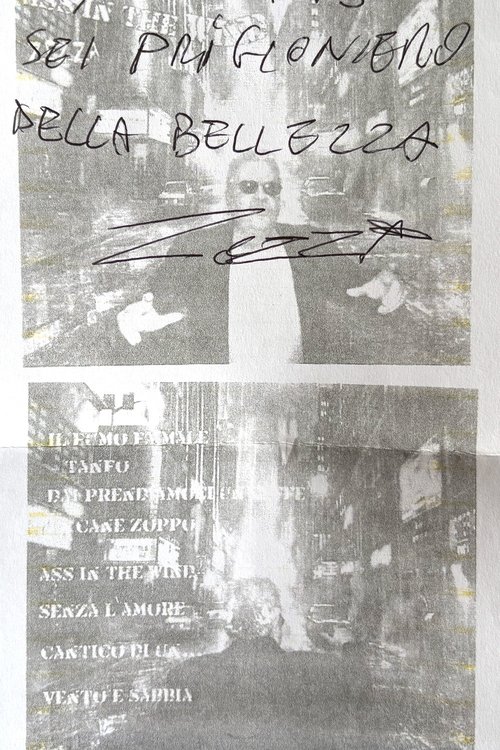 IN THE WIN
SEI PRIGIONIERO
DELLA BELLEZZA
IL FUMO FA MALE
TANFO
DAI PRENDIAMOCI UN CAFFE
CANE ZOPPO
ASS IN THE WIND
SENZA L'AMORE
CANTICO DI UN...
VENTO E SABBIA